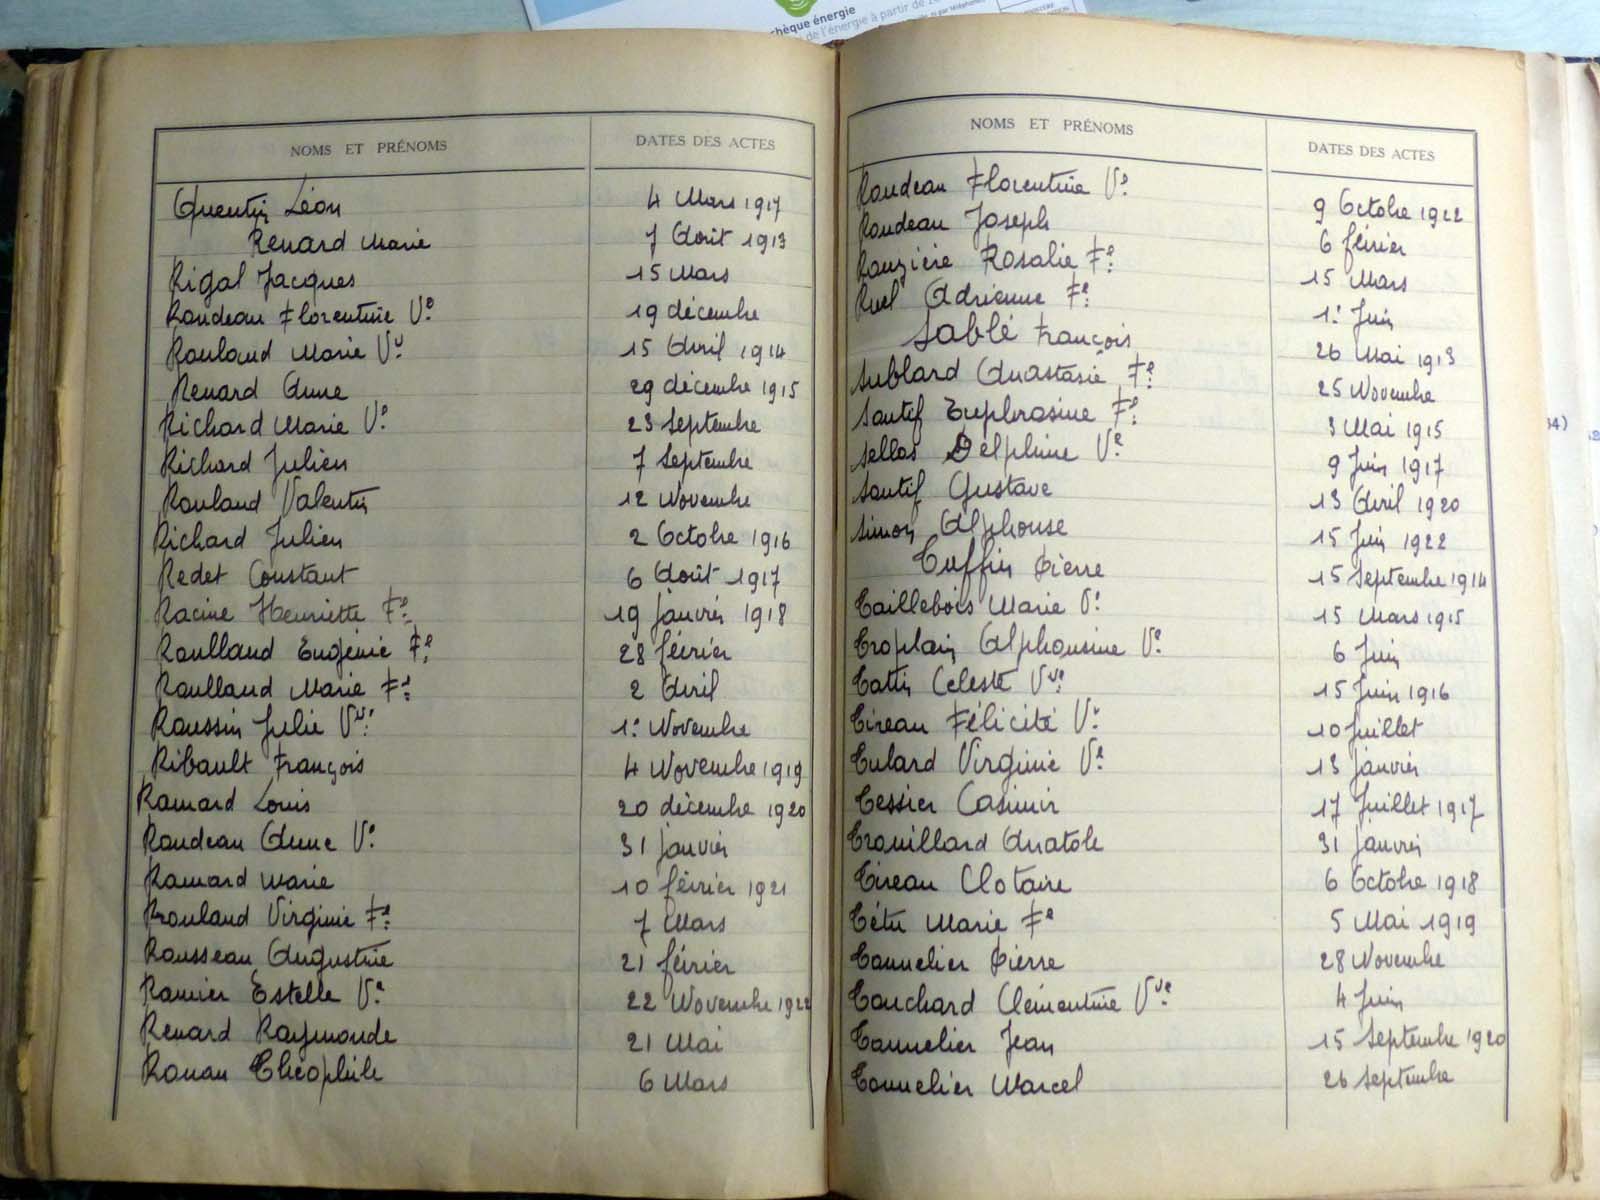 chèque énergie
de l'énergie à partir de
NOMS ET PRÉNOMS DATES DES ACTES
Quentin Léon 4 Mars 1917
Renard Marie 7 Août 1913
Rigal Jacques 15 Mars
Rondeau Florentine Ve 19 décembre
Rouland Marie Vv 15 Avril 1914
Renard Anne 29 décembre 1915
Richard Marie Ve 23 Septembre
Richard Julien 7 Septembre
Rouland Valentin 12 Novembre
Richard Julien 2 Octobre 1916
Redet Constant 6 Août 1917
Racine Henriette Fe 19 janvier 1918
Roulland Eugénie Fe 28 février
Roulland Marie Fe 2 Avril
Roussin Julie Vve 1er Novembre
Ribault François 4 Novembre 1919
Ramard Louis 20 décembre 1920
Rondeau Anne Ve 31 janvier
Ramard Marie 10 février 1921
Rouland Virginie Fe 7 Mars
Rousseau Augustine 21 février
Ramier Estelle Ve 22 Novembre 1922
Renard Raymonde 21 Mai
Rouan Théophile 6 Mars
NOMS ET PRÉNOMS DATES DES ACTES
Rondeau Florentine Ve 9 Octobre 1922
Rondeau Joseph 6 février
Rouzière Rosalie Fe 15 Mars
Ruel Adrienne Fe 1er Juin
Sablé François 26 Mai 1913
Sublard Anastasie Fe 25 Novembre
Soutif Euphrasine Fe 3 Mai 1915
Sellos Delphine Ve 9 Juin 1917
Soutif Gustave 13 Avril 1920
Simon Alphonse 15 Juin 1922
Tuffin Pierre 15 Septembre 1914
Taillebois Marie Ve 15 Mars 1915
Troplain Alphonsine Ve 6 Juin
Tattin Celeste Vve 15 Juin 1916
Tireau Félicité Vv 10 Juillet
Tulard Virginie Ve 13 janvier
Tessier Casimir 17 Juillet 1917
Trouillard Anatole 31 Janvier
Tireau Clotaire 6 Octobre 1918
Tétu Marie Fe 5 Mai 1919
Tonnelier Pierre 28 Novembre
Touchard Clémentine Vve 4 Juin
Tonnelier Jean 15 Septembre 1920
Tonnelier Marcel 26 Septembre